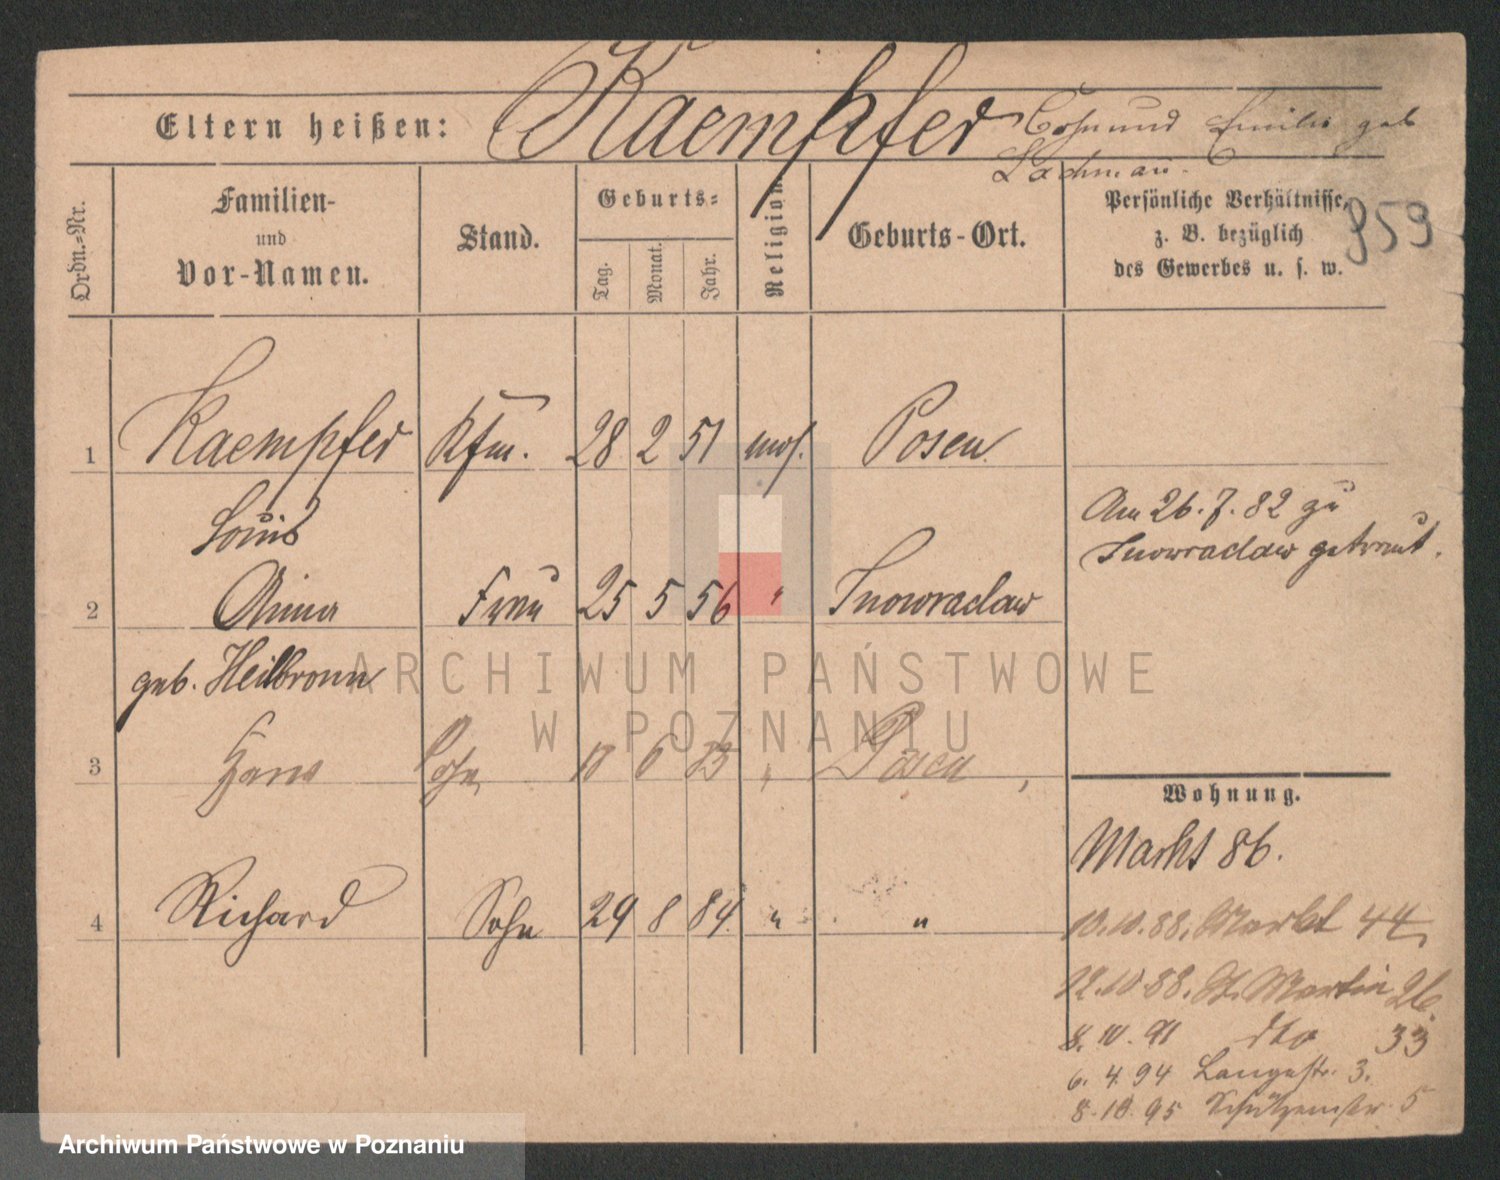 Eltern heißen: Kaempfer Cohn und Emilie geb
Lachman.
Ordn.-Nr.
Familien-
und
Vor-Namen.
Stand.
Geburts-
Tag.
Monat.
Jahr.
Religion.
Geburts-Ort.
Persönliche Verhältnisse,
z. B. bezüglich
des Gewerbes u. s. w.
959
1 Kaempfer Kfm. 28 2 51 mos. Posen.
Louis
Am 26.7.82 zu
Inowraclaw getraut.
2 Anna Frau 25 5 56 " Inowraclaw
geb. Heilbronn
3 Hans Sohn 10 6 83 " Posen
4 Richard Sohn 29 8 84 " "
Wohnung.
Markt 86.
10.10.88. Markt 44
12.10.88. St. Martin 26.
8.10.91 dto 33
6.4.94 Langestr. 3.
8.10.95 Schützenstr. 5
ARCHIWUM PAŃSTWOWE
W POZNANIU
Archiwum Państwowe w Poznaniu